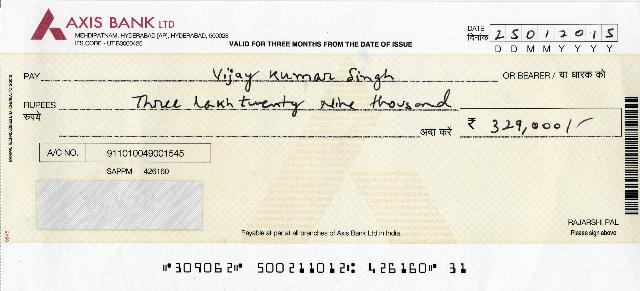 AXIS BANK LTD
MEHDIPATNAM, HYDERABAD [AP], HYDERABAD, 500028
VALID FOR THREE MONTHS FROM THE DATE OF ISSUE
DATE दिनांक 25012015
D D M M Y Y Y Y
PAY Vijay Kumar Singh OR BEARER / या धारक को
RUPEES रुपये Three lakh twenty Nine thousand
अदा करें ₹ 329,000/-
A/C NO. 911010049001545
SAPPM 426160
RAJARSHI PAL
Payable at par at all branches of Axis Bank Ltd in India.
Please sign above
⑈309062⑈ 500211012⑆ 426160⑈ 31